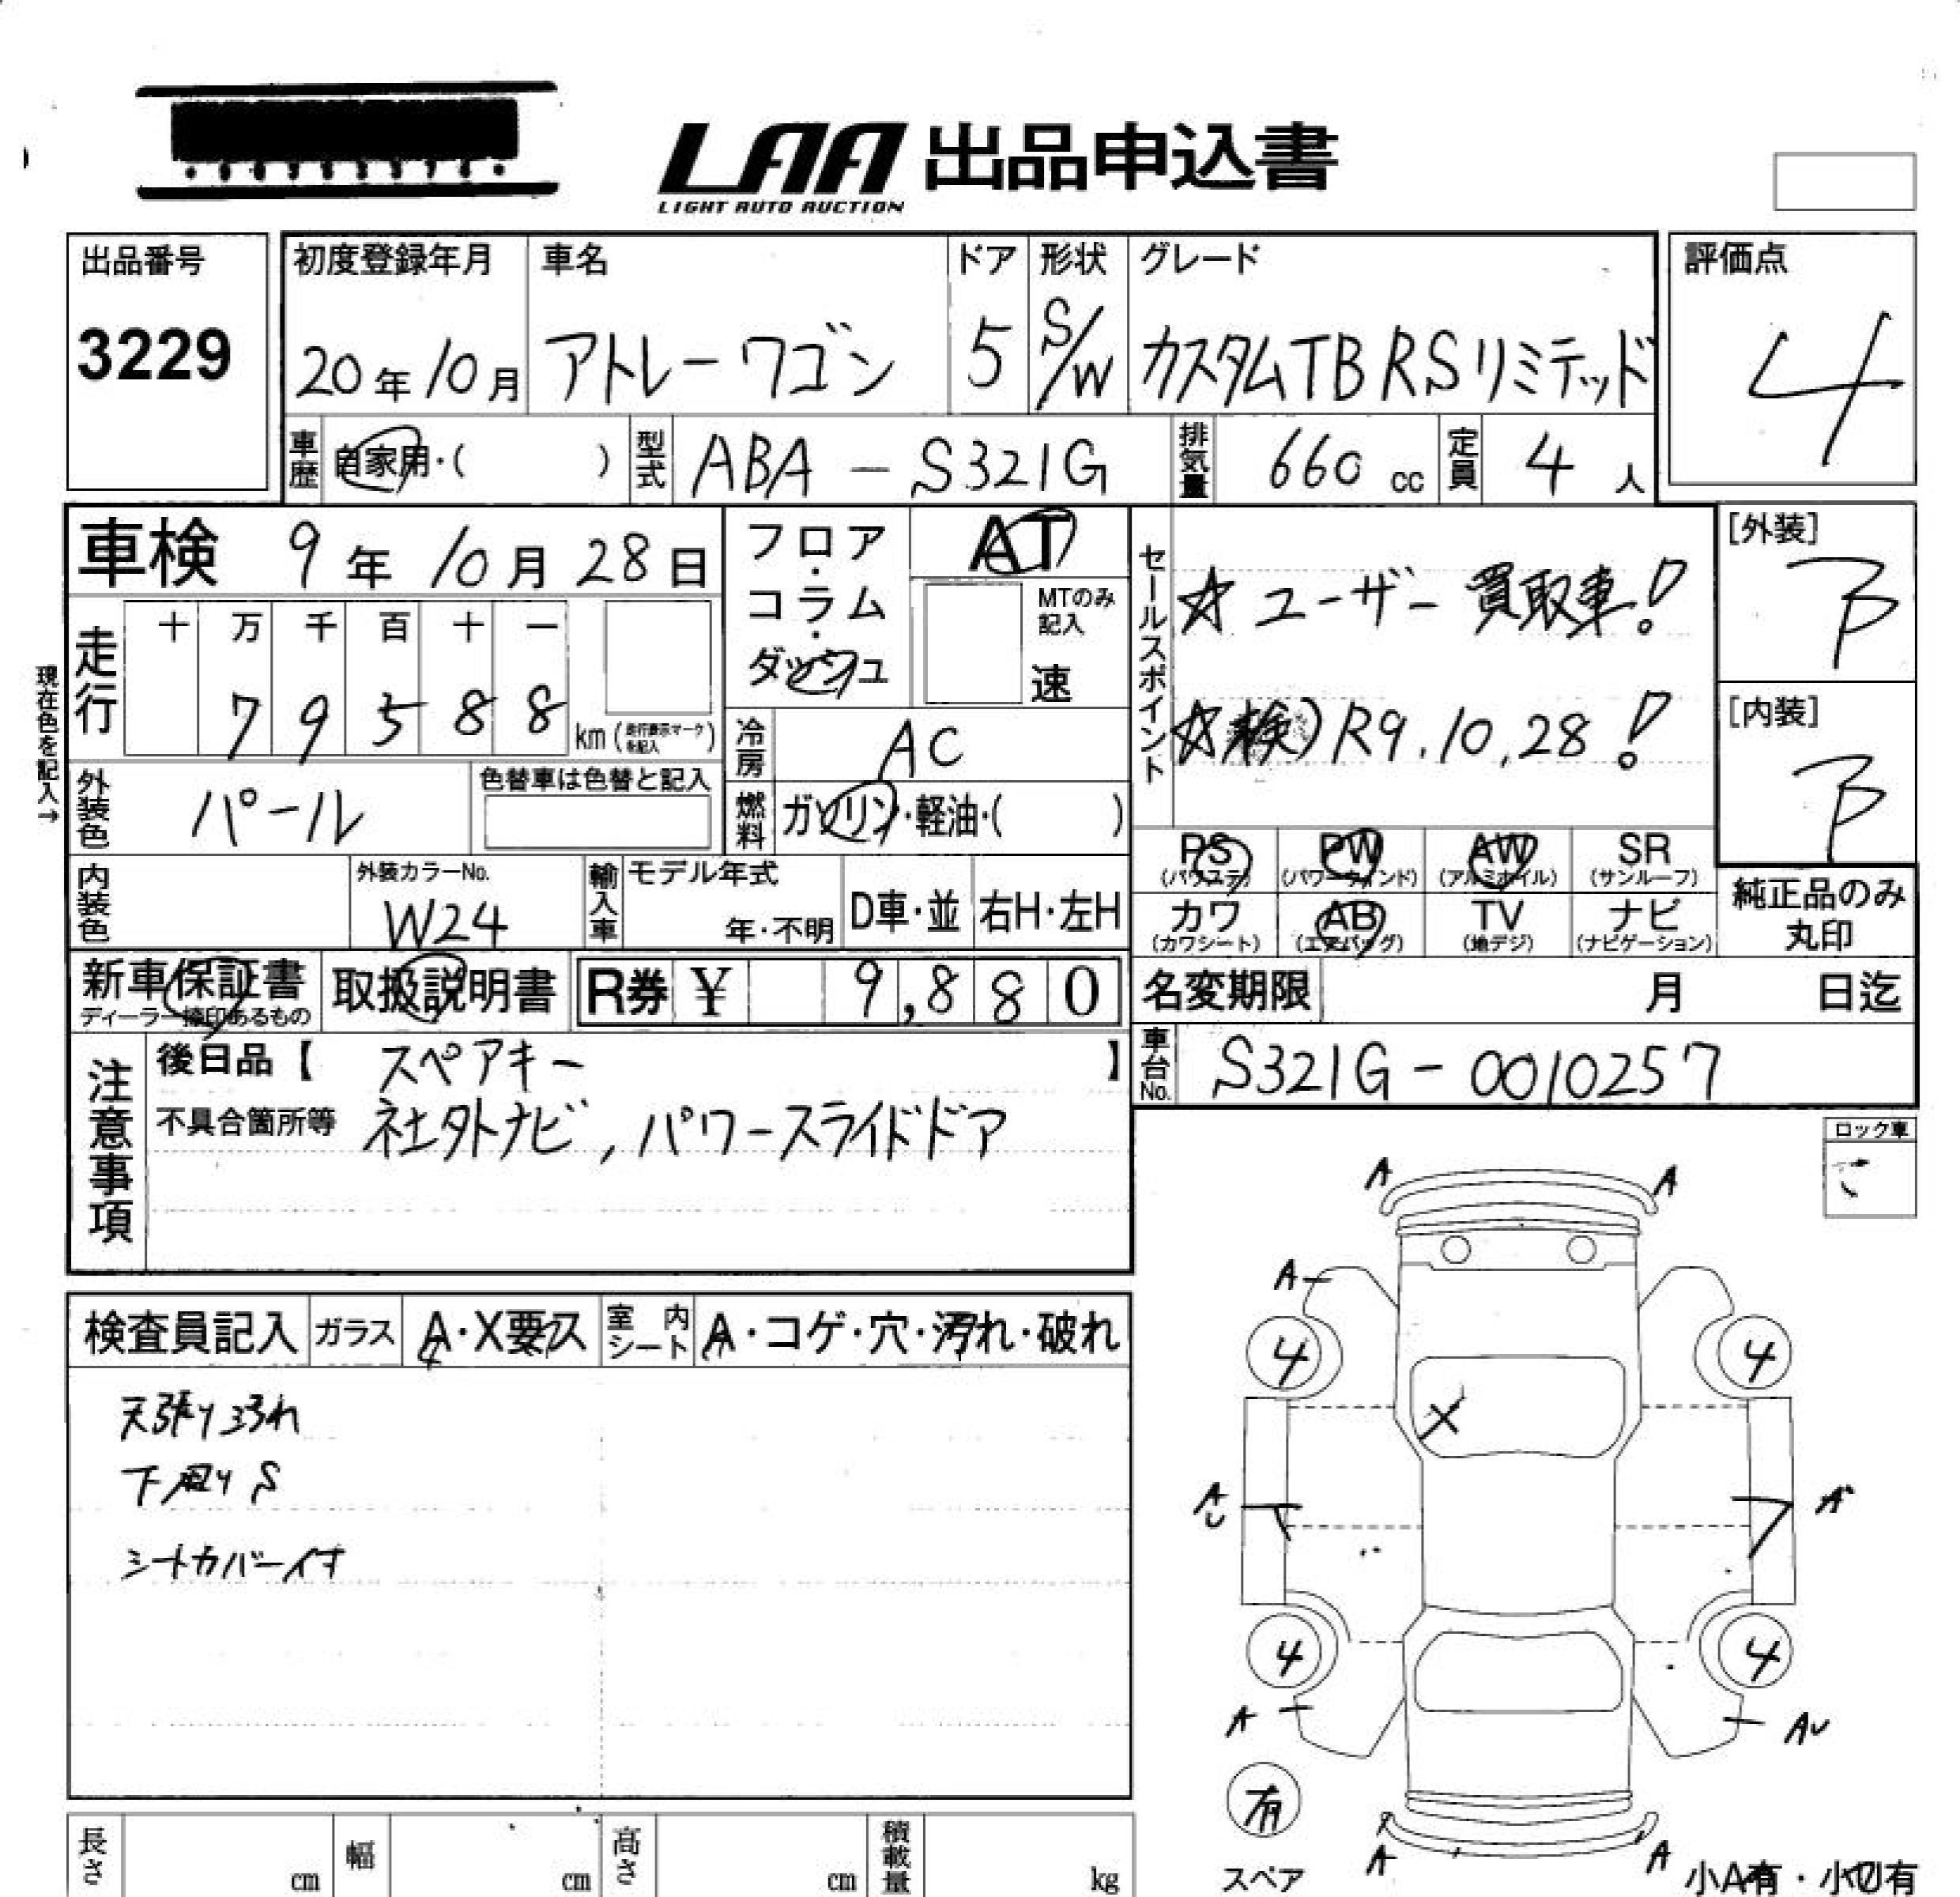 LAA 出品申込書
LIGHT AUTO AUCTION
出品番号
3229
初度登録年月 車名 ドア 形状 グレード
20年10月 アトレーワゴン 5 S/W カスタムTB RSリミテッド
評価点
4
車歴 自家用・( ) 型式 ABA-S321G 排気量 660 cc 定員 4人
車検 9年10月28日
走行 十万千百十一
79588 km (走行表示マークを記入)
現在色を記入→
外装色 パール 色替車は色替と記入
内装色 外装カラーNo. W24
輸入車 モデル年式 年・不明 D車・並 右H・左H
フロア・コラム・ダッシュ
AT
MTのみ記入
速
冷房 AC
燃料 ガソリン・軽油・( )
セールスポイント
☆ユーザー買取車!
☆検)R9.10.28!
[外装]
B
[内装]
B
PS (パワステ) PW (パワーウィンド) AW (アルミホイル) SR (サンルーフ)
カワ (カワシート) AB (エアバッグ) TV (地デジ) ナビ (ナビゲーション)
純正品のみ丸印
新車保証書 取扱説明書 R券 ¥ 9,880
ディーラー捺印あるもの
名変期限 月 日迄
車台No. S321G-0010257
注意事項
後日品【 スペアキー 】
不具合箇所等 社外ナビ,パワースライドドア
ロック車
検査員記入 ガラス A・X要ス 室内シート A・コゲ・穴・汚れ・破れ
天張り汚れ
下廻りS
シートカバーイス
A A
A
4 4
X
A A
4 4
A AU
有
スペア
A A
小A有・小U有
長さ cm 幅 cm 高さ cm 積載量 kg